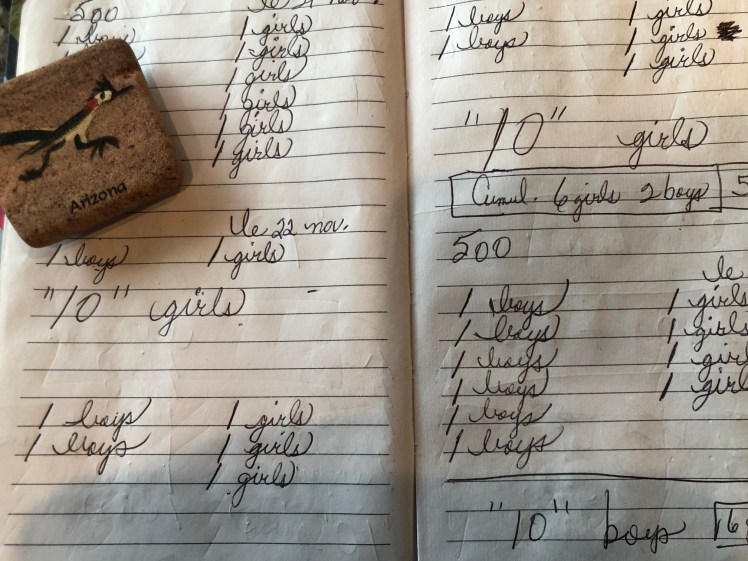 500
Le 21 nov.
1 boys 1 girls
1 girls
1 girls
1 girls
1 girls
1 girls
Arizona
Le 22 nov.
1 boys 1 girls
"10" girls
1 boys 1 girls
1 boys 1 girls
1 girls
1 boys 1 girls
1 boys 1 girls
1 girls
"10" girls
Cumul. 6 girls 2 boys
500
Le
1 boys 1 girls
1 boys 1 girls
1 boys 1 girls
1 boys 1 girls
1 boys
1 boys
"10" boys